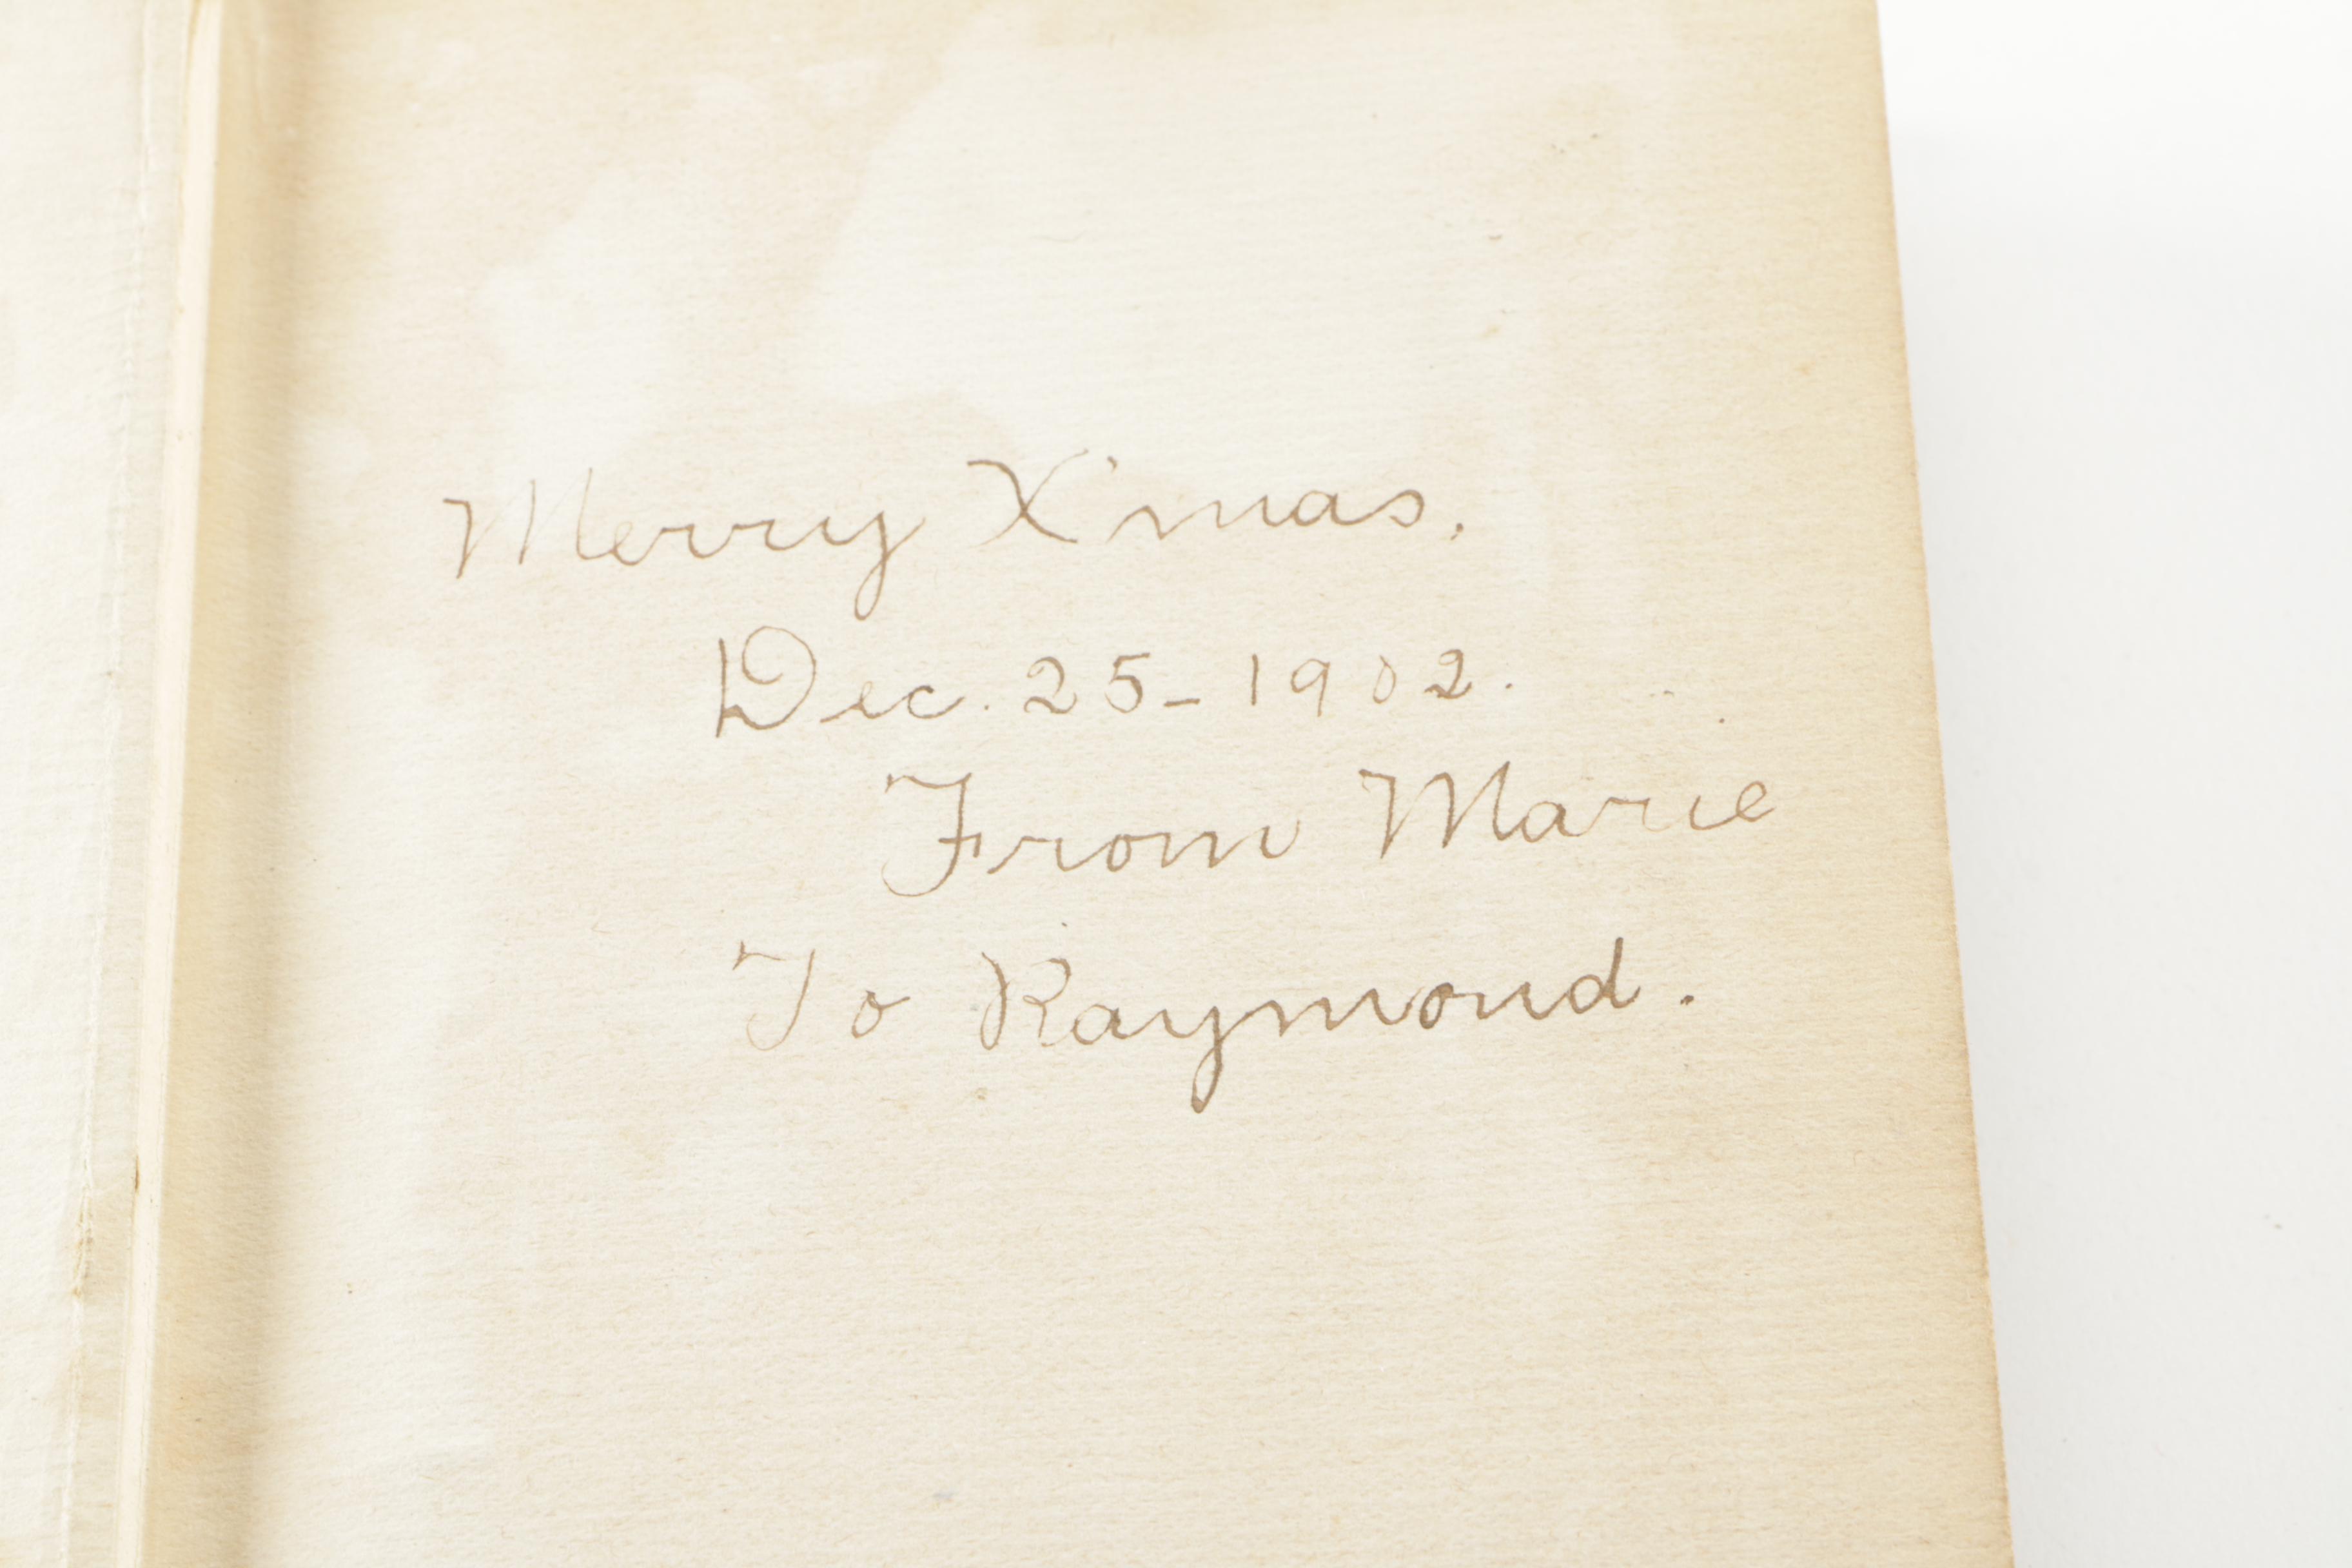 Merry X'mas.
Dec. 25-1902.
From Marie
To Raymond.